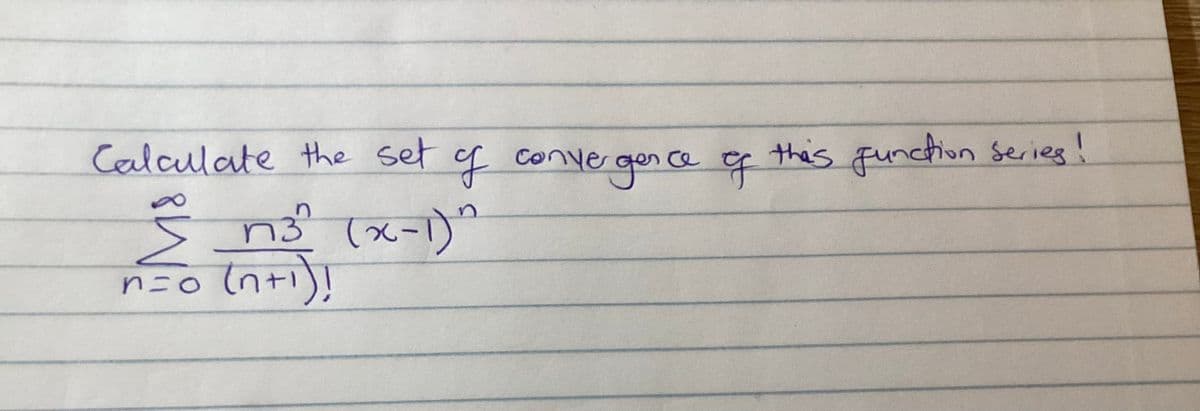 Calculate the set of convergence of this function series!
∞
Σ n3ⁿ (x-1)ⁿ
n=0 (n+1)!